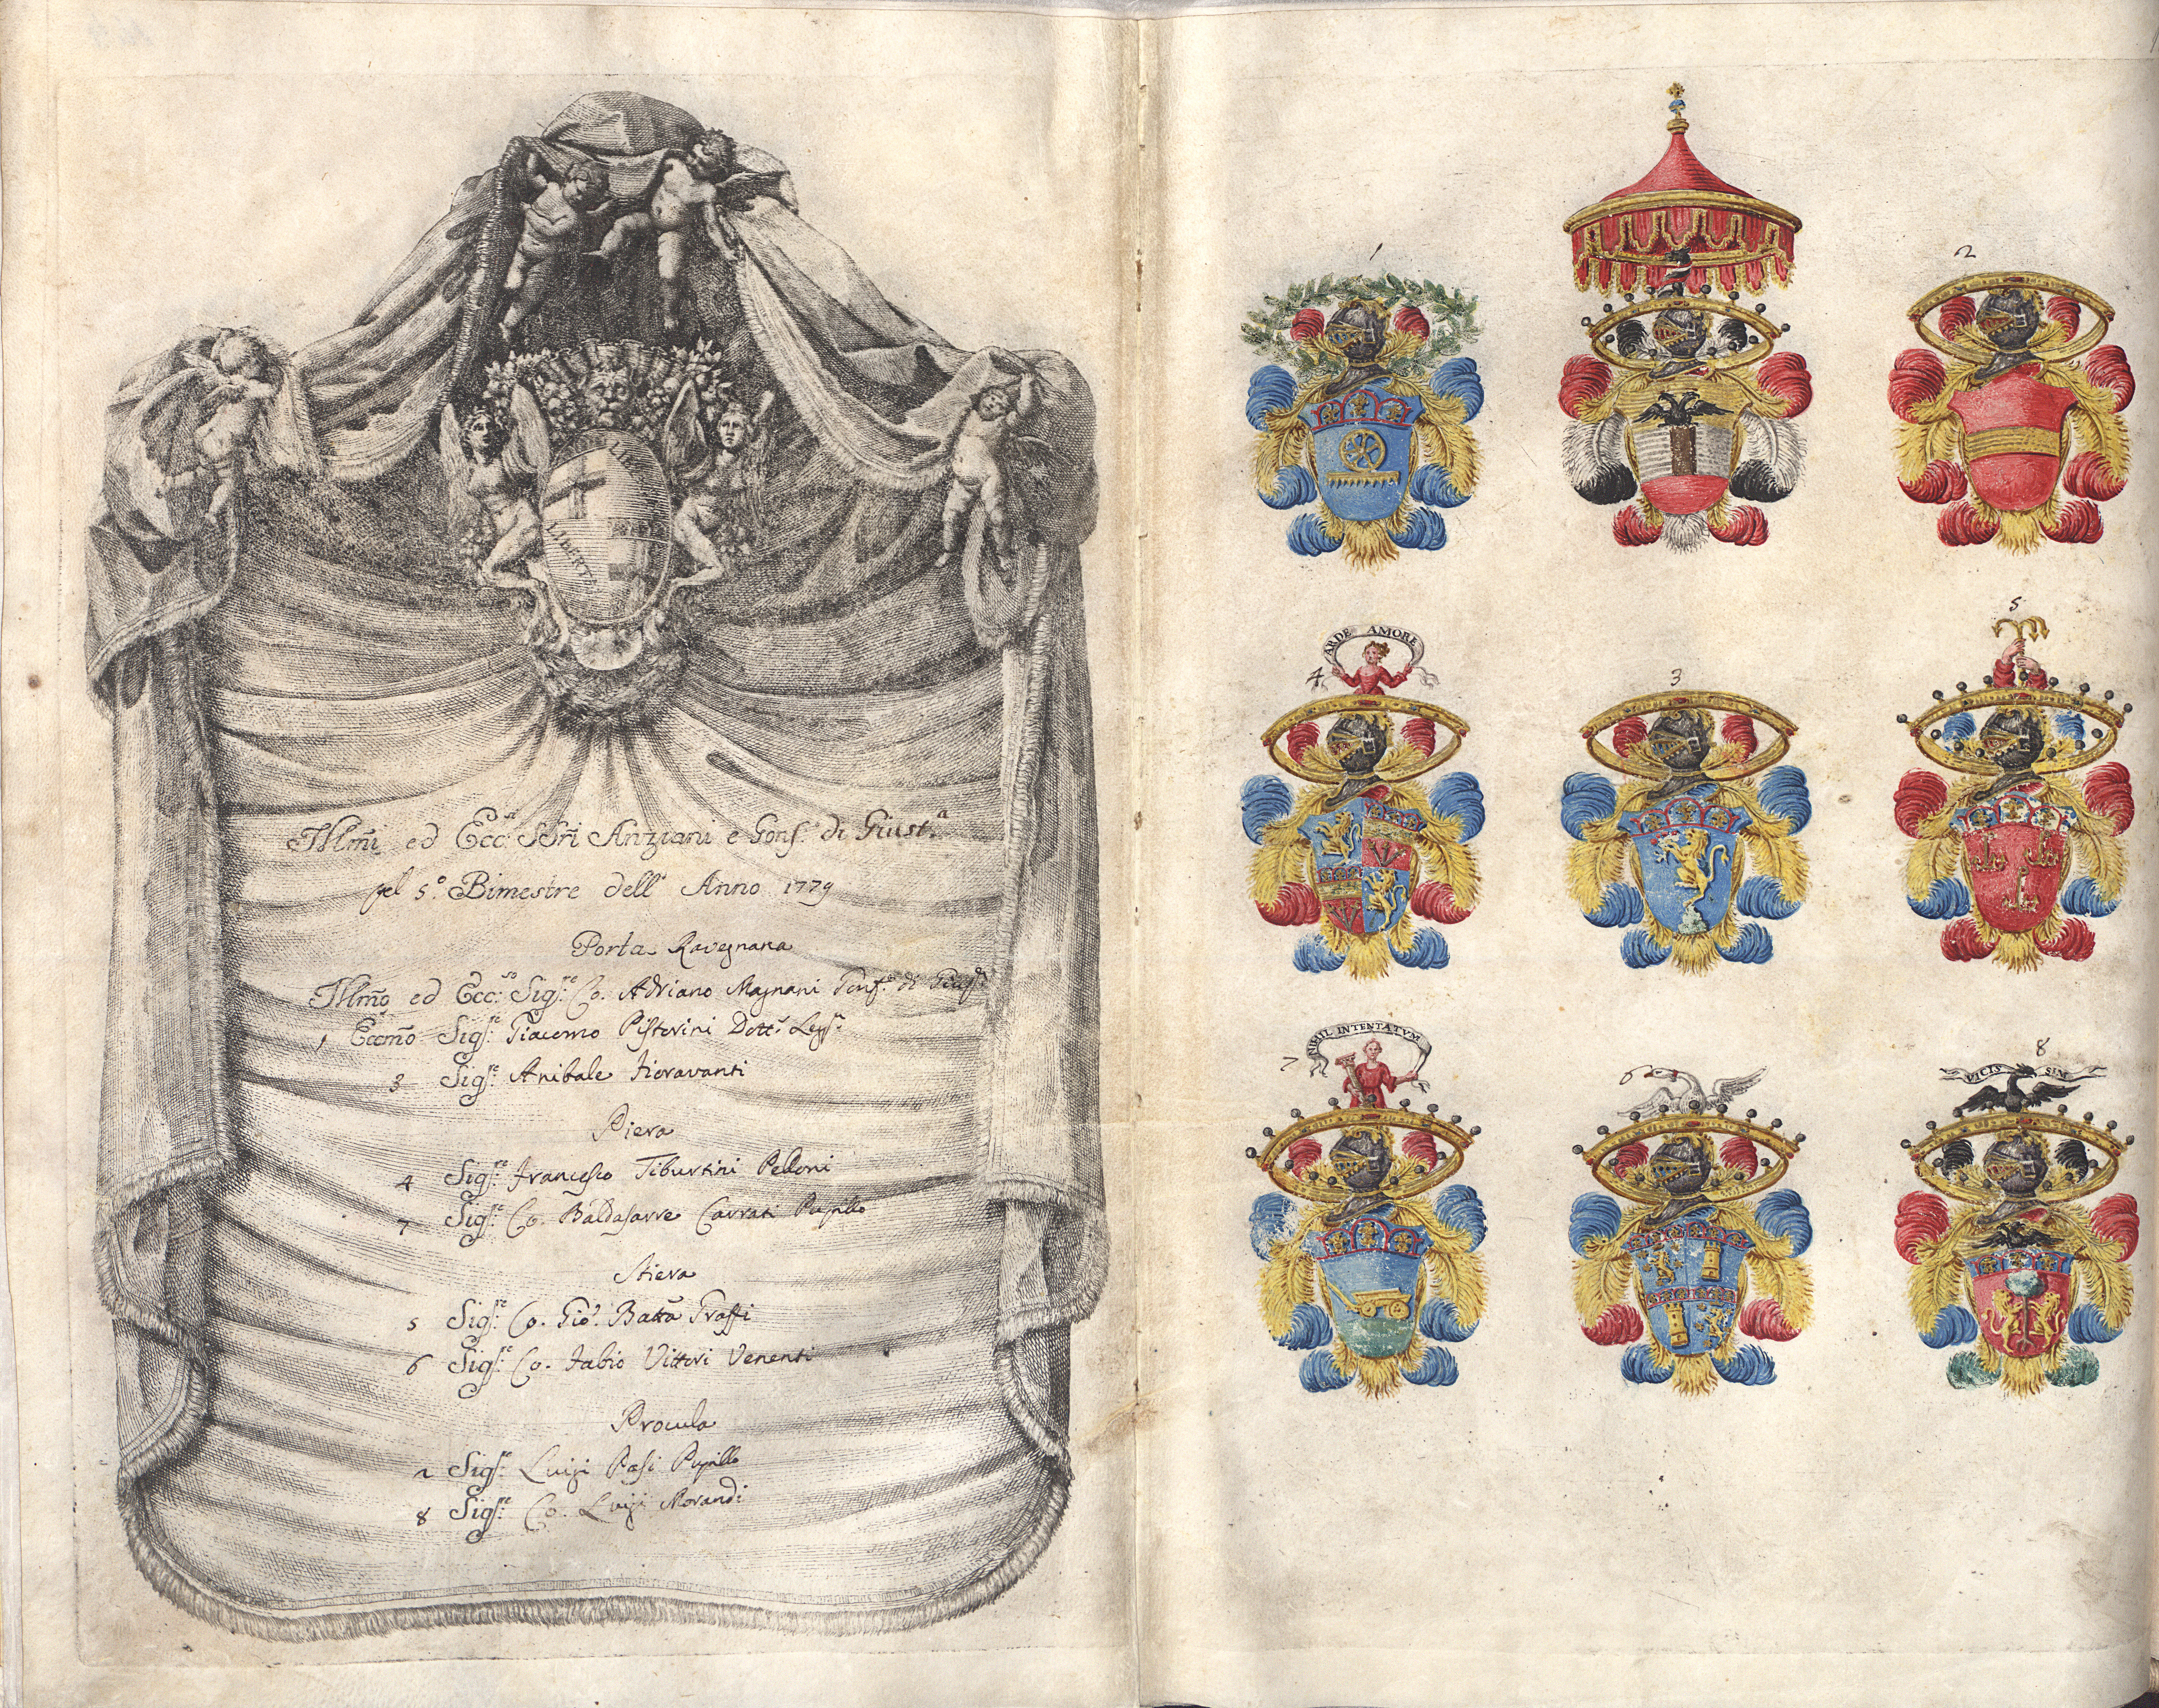 LIBERTAS
Illm̃i ed Ecc:ˢⁱ SSri Anziani e Gonf. di Giust.ᵃ
pel 5.º Bimestre dell' Anno 1779
Porta Ravegnana
Illm̃o ed Ecc:ˢᵒ Sigʳᵉ: Co. Adriano Magnani Gonf.ᵉ di Giusᵃ
1 Eccm̃o Sigʳᵉ: Giacomo Pistorini Dottʳ
3 Sigʳᵉ: Anibale Fioravanti
Piera
4 Sigʳᵉ: Francesco Tiburtini Pelloni
7 Sigʳᵉ: Co. Baldasarre Carrati Pupillo
Stiera
5 Sigʳᵉ: Co. Gio: Batta Graffi
6 Sigʳᵉ: Co. Fabio Vittori Venenti
Procula
2 Sigʳᵉ: Luigi Pasi Pupillo
8 Sigʳᵉ: Co. Luigi Morandi
1
2
ARDE AMORE
4
3
5
NIHIL INTENTATVM
7
6
8
VICIS SIM